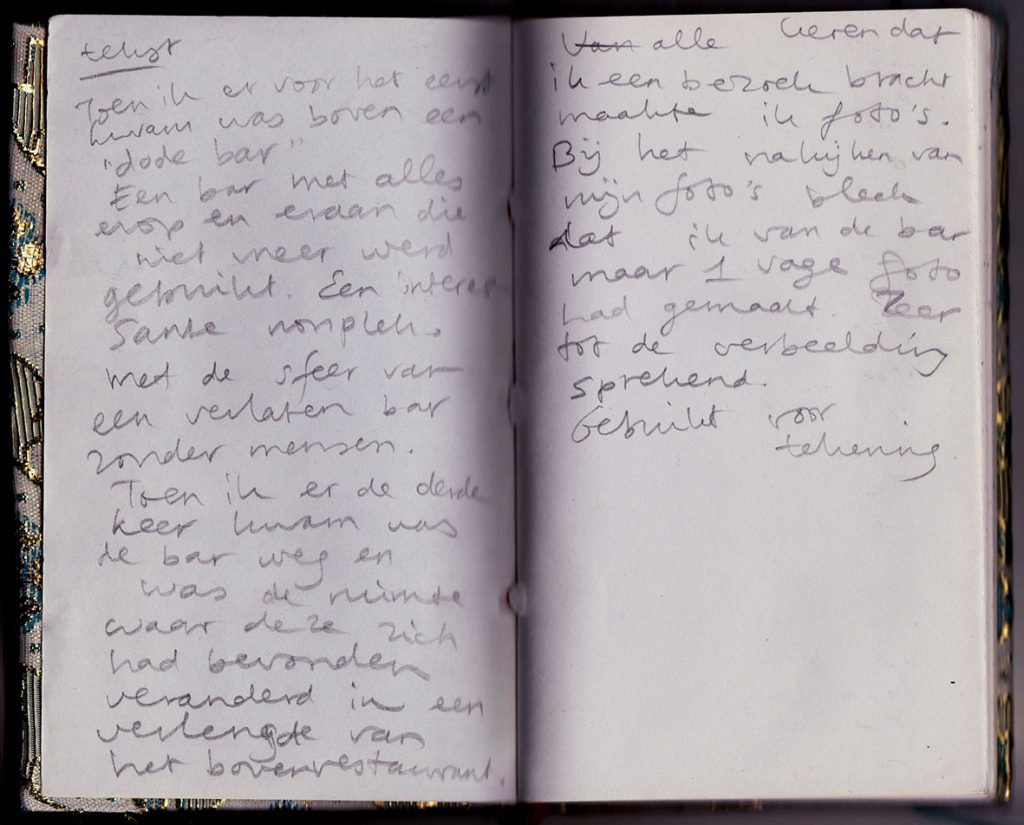 tekst
Toen ik er voor het eerst
kwam was boven een
"dode bar"
Een bar met alles
erop en eraan die
niet meer werd
gebruikt. Een interes
sante nonplek.
met de sfeer van
een verlaten bar
zonder mensen.
Toen ik er de derde
keer kwam was
de bar weg en
was de ruimte
waar deze zich
had bevonden
veranderd in een
verlengde van
het bovenrestaurant.
Van alle keren dat
ik een bezoek bracht
maakte ik foto's.
Bij het nakijken van
mijn foto's bleek
dat ik van de bar
maar 1 vage foto
had gemaakt. Zeer
tot de verbeelding
sprekend.
Gebruikt voor
tekening.